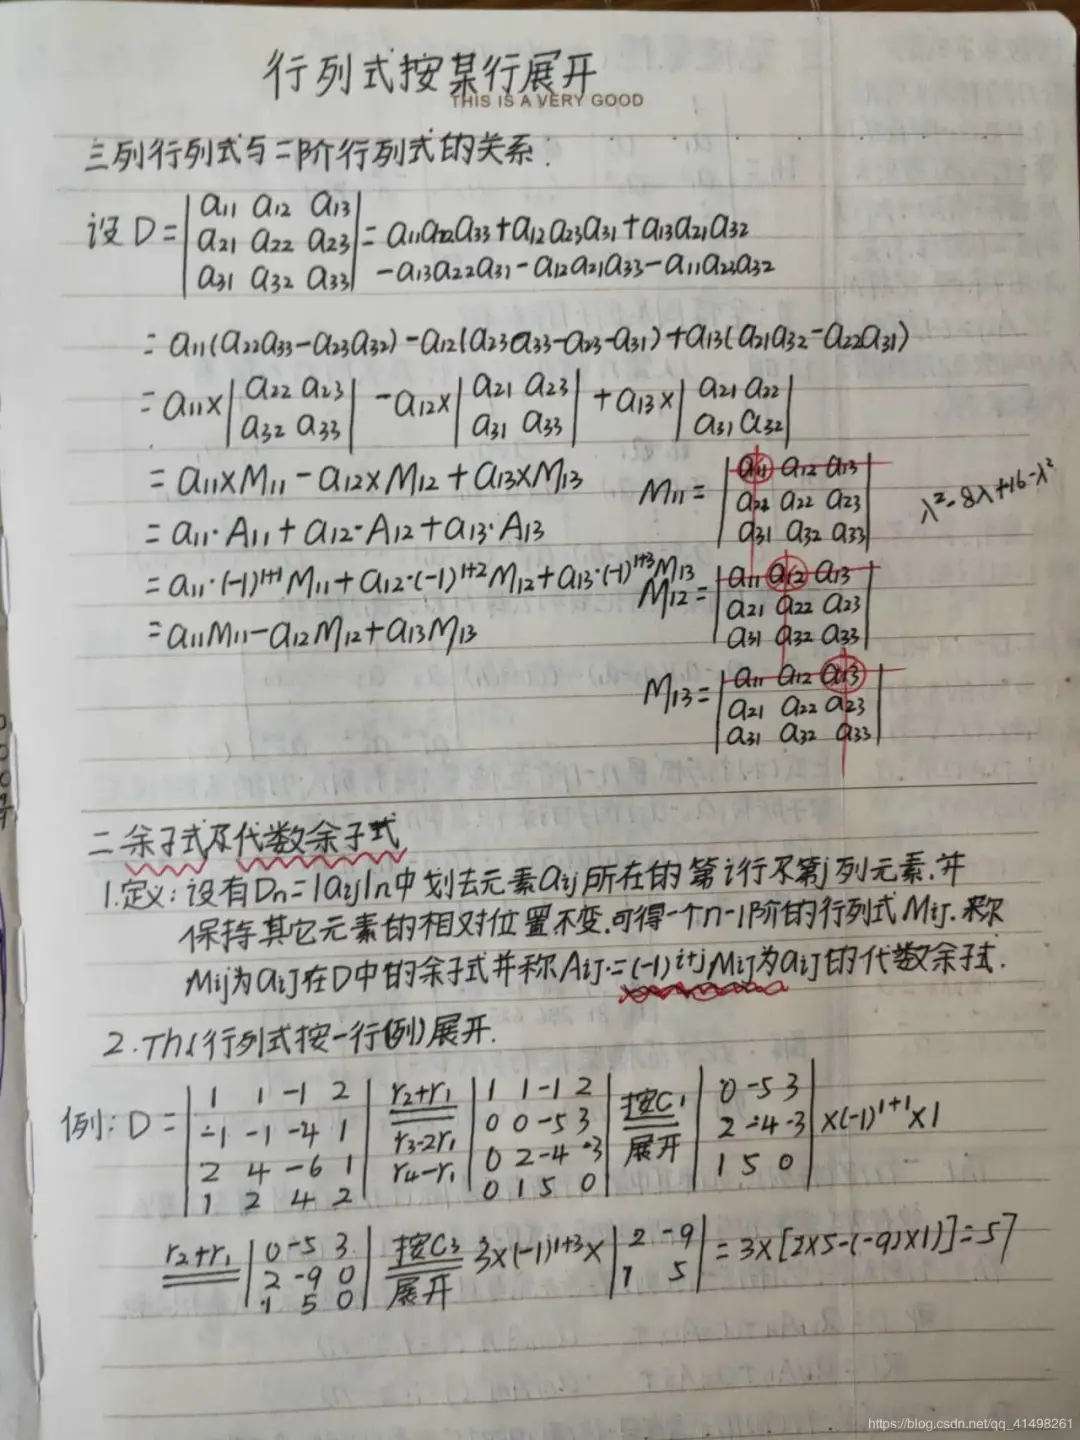 行列式按某行展开
THIS IS A VERY GOOD
三列行列式与二阶行列式的关系.
设 D = | a11 a12 a13 | = a11a22a33+a12a23a31+a13a21a32
| a21 a22 a23 |
| a31 a32 a33 | -a13a22a31-a12a21a33-a11a23a32
= a11(a22a33-a23a32)-a12(a23a33-a23-a31)+a13(a21a32-a22a31)
= a11× | a22 a23 | -a12× | a21 a23 | +a13× | a21 a22 |
| a32 a33 | | a31 a33 | | a31 a32 |
= a11×M11 - a12×M12 + a13×M13
= a11·A11 + a12·A12 + a13·A13
= a11·(-1)^1+1 M11 + a12·(-1)^1+2 M12 + a13·(-1)^1+3 M13
= a11M11-a12M12+a13M13
M11 = | a11 a12 a13 |
| a21 a22 a23 |
| a31 a32 a33 |
λ²-8λ+16-λ²
M12 = | a11 a12 a13 |
| a21 a22 a23 |
| a31 a32 a33 |
M13 = | a11 a12 a13 |
| a21 a22 a23 |
| a31 a32 a33 |
二 余子式及代数余子式
1.定义: 设有Dn=|aij|n中划去元素aij所在的第i行不第j列元素.并
保持其它元素的相对位置不变.可得一个n-1阶的行列式Mij.称
Mij为aij在D中的余子式并称Aij.=(-1)^i+j Mij为aij的代数余子式.
2.Th(行列式按一行(列)展开.
例: D = | 1 1 -1 2 | r2+r1 | 1 1 -1 2 | 按C1 | 0 -5 3 |
| -1 -1 -4 1 | r3-2r1 | 0 0 -5 3 | 展开 | 2 -4 -3 | ×(-1)^1+1 ×1
| 2 4 -6 1 | r4-r1 | 0 2 -4 -3 | | 1 5 0 |
| 1 2 4 2 | | 0 1 5 0 |
r2+r1 | 0 -5 3 | 按C3 3×(-1)^1+3 × | 2 -9 | = 3×[2×5-(-9)×1)]=57
| 2 -9 0 | 展开 | 1 5 |
| 1 5 0 |
https://blog.csdn.net/qq_41498261